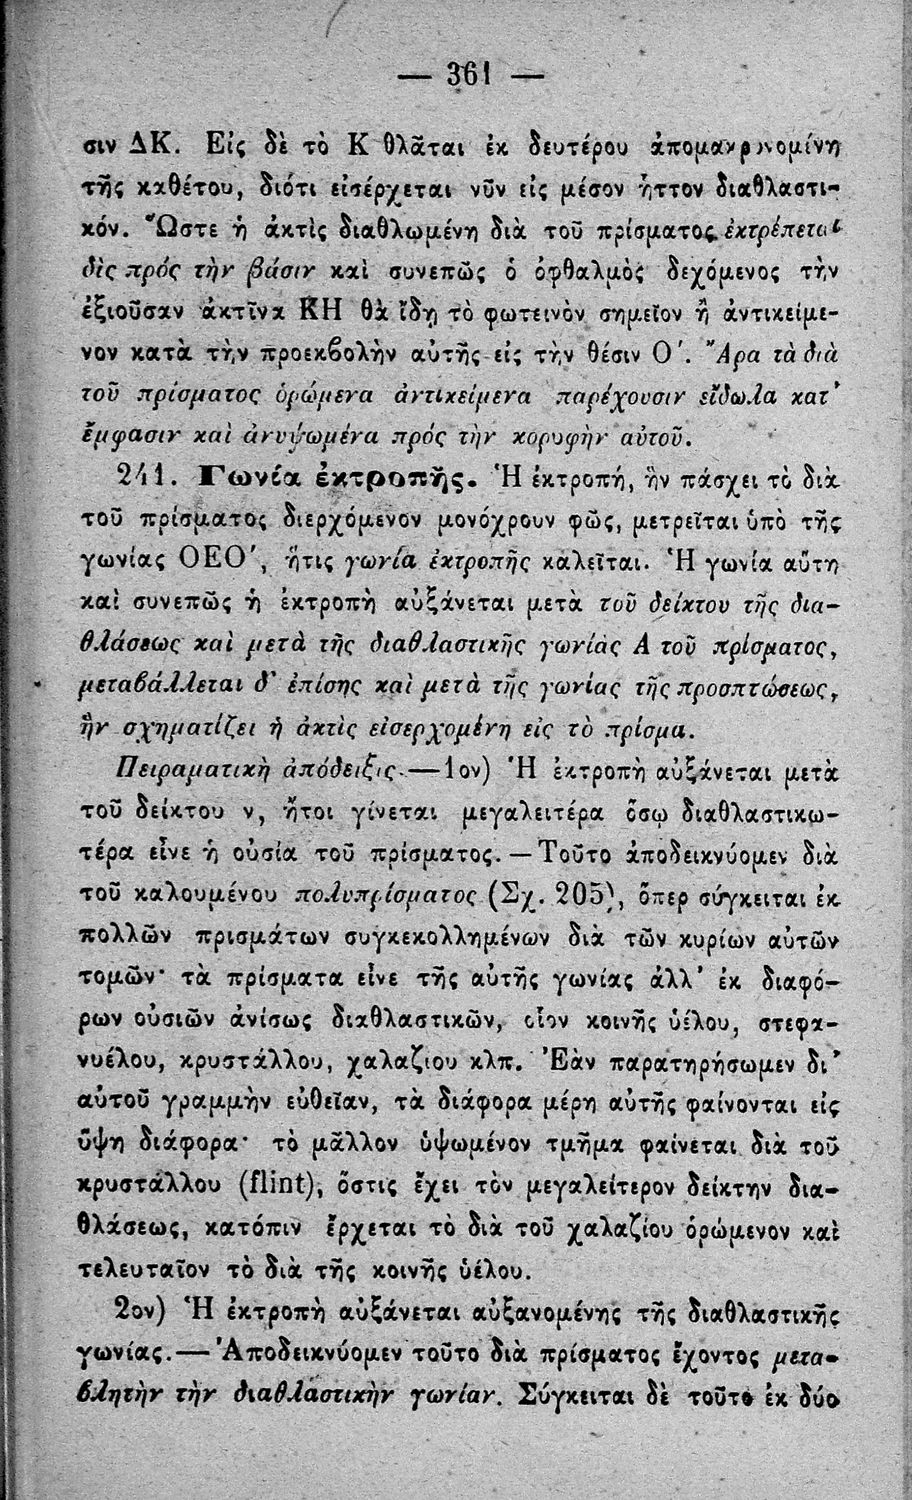 — 361 —
σιν ΔΚ. Εἰς δὲ τὸ Κ θλᾶται ἐκ δευτέρου ἀπομακρυνομένη
τῆς καθέτου, διότι εἰσέρχεται νῦν εἰς μέσον ἧττον διαθλαστι-
κόν. Ὥστε ἡ ἀκτὶς διαθλωμένη διὰ τοῦ πρίσματος ἐκτρέπεται
δὶς πρὸς τὴν βάσιν καὶ συνεπῶς ὁ ὀφθαλμὸς δεχόμενος τὴν
ἐξιοῦσαν ἀκτῖνα ΚΗ θὰ ἴδῃ τὸ φωτεινὸν σημεῖον ἢ ἀντικείμε-
νον κατὰ τὴν προεκβολὴν αὐτῆς εἰς τὴν θέσιν Ο΄. Ἄρα τὰ διὰ
τοῦ πρίσματος ὁρώμενα ἀντικείμενα παρέχουσιν εἴδωλα κατ᾽
ἔμφασιν καὶ ἀνυψωμένα πρὸς τὴν κορυφὴν αὐτοῦ.
241. Γωνία ἐκτροπῆς. Ἡ ἐκτροπή, ἣν πάσχει τὸ διὰ
τοῦ πρίσματος διερχόμενον μονόχρουν φῶς, μετρεῖται ὑπὸ τῆς
γωνίας ΟΕΟ΄, ἥτις γωνία ἐκτροπῆς καλεῖται. Ἡ γωνία αὕτη
καὶ συνεπῶς ἡ ἐκτροπὴ αὐξάνεται μετὰ τοῦ δείκτου τῆς δια-
θλάσεως καὶ μετὰ τῆς διαθλαστικῆς γωνίας Α τοῦ πρίσματος,
μεταβάλλεται δ᾽ ἐπίσης καὶ μετὰ τῆς γωνίας τῆς προσπτώσεως,
ἣν σχηματίζει ἡ ἀκτὶς εἰσερχομένη εἰς τὸ πρίσμα.
Πειραματικὴ ἀπόδειξις.—1ον) Ἡ ἐκτροπὴ αὐξάνεται μετὰ
τοῦ δείκτου ν, ἤτοι γίνεται μεγαλειτέρα ὅσῳ διαθλαστικω-
τέρα εἶνε ἡ οὐσία τοῦ πρίσματος. — Τοῦτο ἀποδεικνύομεν διὰ
τοῦ καλουμένου πολυπρίσματος (Σχ. 205), ὅπερ σύγκειται ἐκ
πολλῶν πρισμάτων συγκεκολλημένων διὰ τῶν κυρίων αὐτῶν
τομῶν· τὰ πρίσματα εἶνε τῆς αὐτῆς γωνίας ἀλλ᾽ ἐκ διαφό-
ρων οὐσιῶν ἀνίσως διαθλαστικῶν, οἷον κοινῆς ὑέλου, στεφα-
νυέλου, κρυστάλλου, χαλαζίου κλπ. Ἐὰν παρατηρήσωμεν δι᾽
αὐτοῦ γραμμὴν εὐθεῖαν, τὰ διάφορα μέρη αὐτῆς φαίνονται εἰς
ὕψη διάφορα· τὸ μᾶλλον ὑψωμένον τμῆμα φαίνεται διὰ τοῦ
κρυστάλλου (flint), ὅστις ἔχει τὸν μεγαλείτερον δείκτην δια-
θλάσεως, κατόπιν ἔρχεται τὸ διὰ τοῦ χαλαζίου ὁρώμενον καὶ
τελευταῖον τὸ διὰ τῆς κοινῆς ὑέλου.
2ον) Ἡ ἐκτροπὴ αὐξάνεται αὐξανομένης τῆς διαθλαστικῆς
γωνίας.— Ἀποδεικνύομεν τοῦτο διὰ πρίσματος ἔχοντος μετα-
βλητὴν τὴν διαθλαστικὴν γωνίαν. Σύγκειται δὲ τοῦτο ἐκ δύο